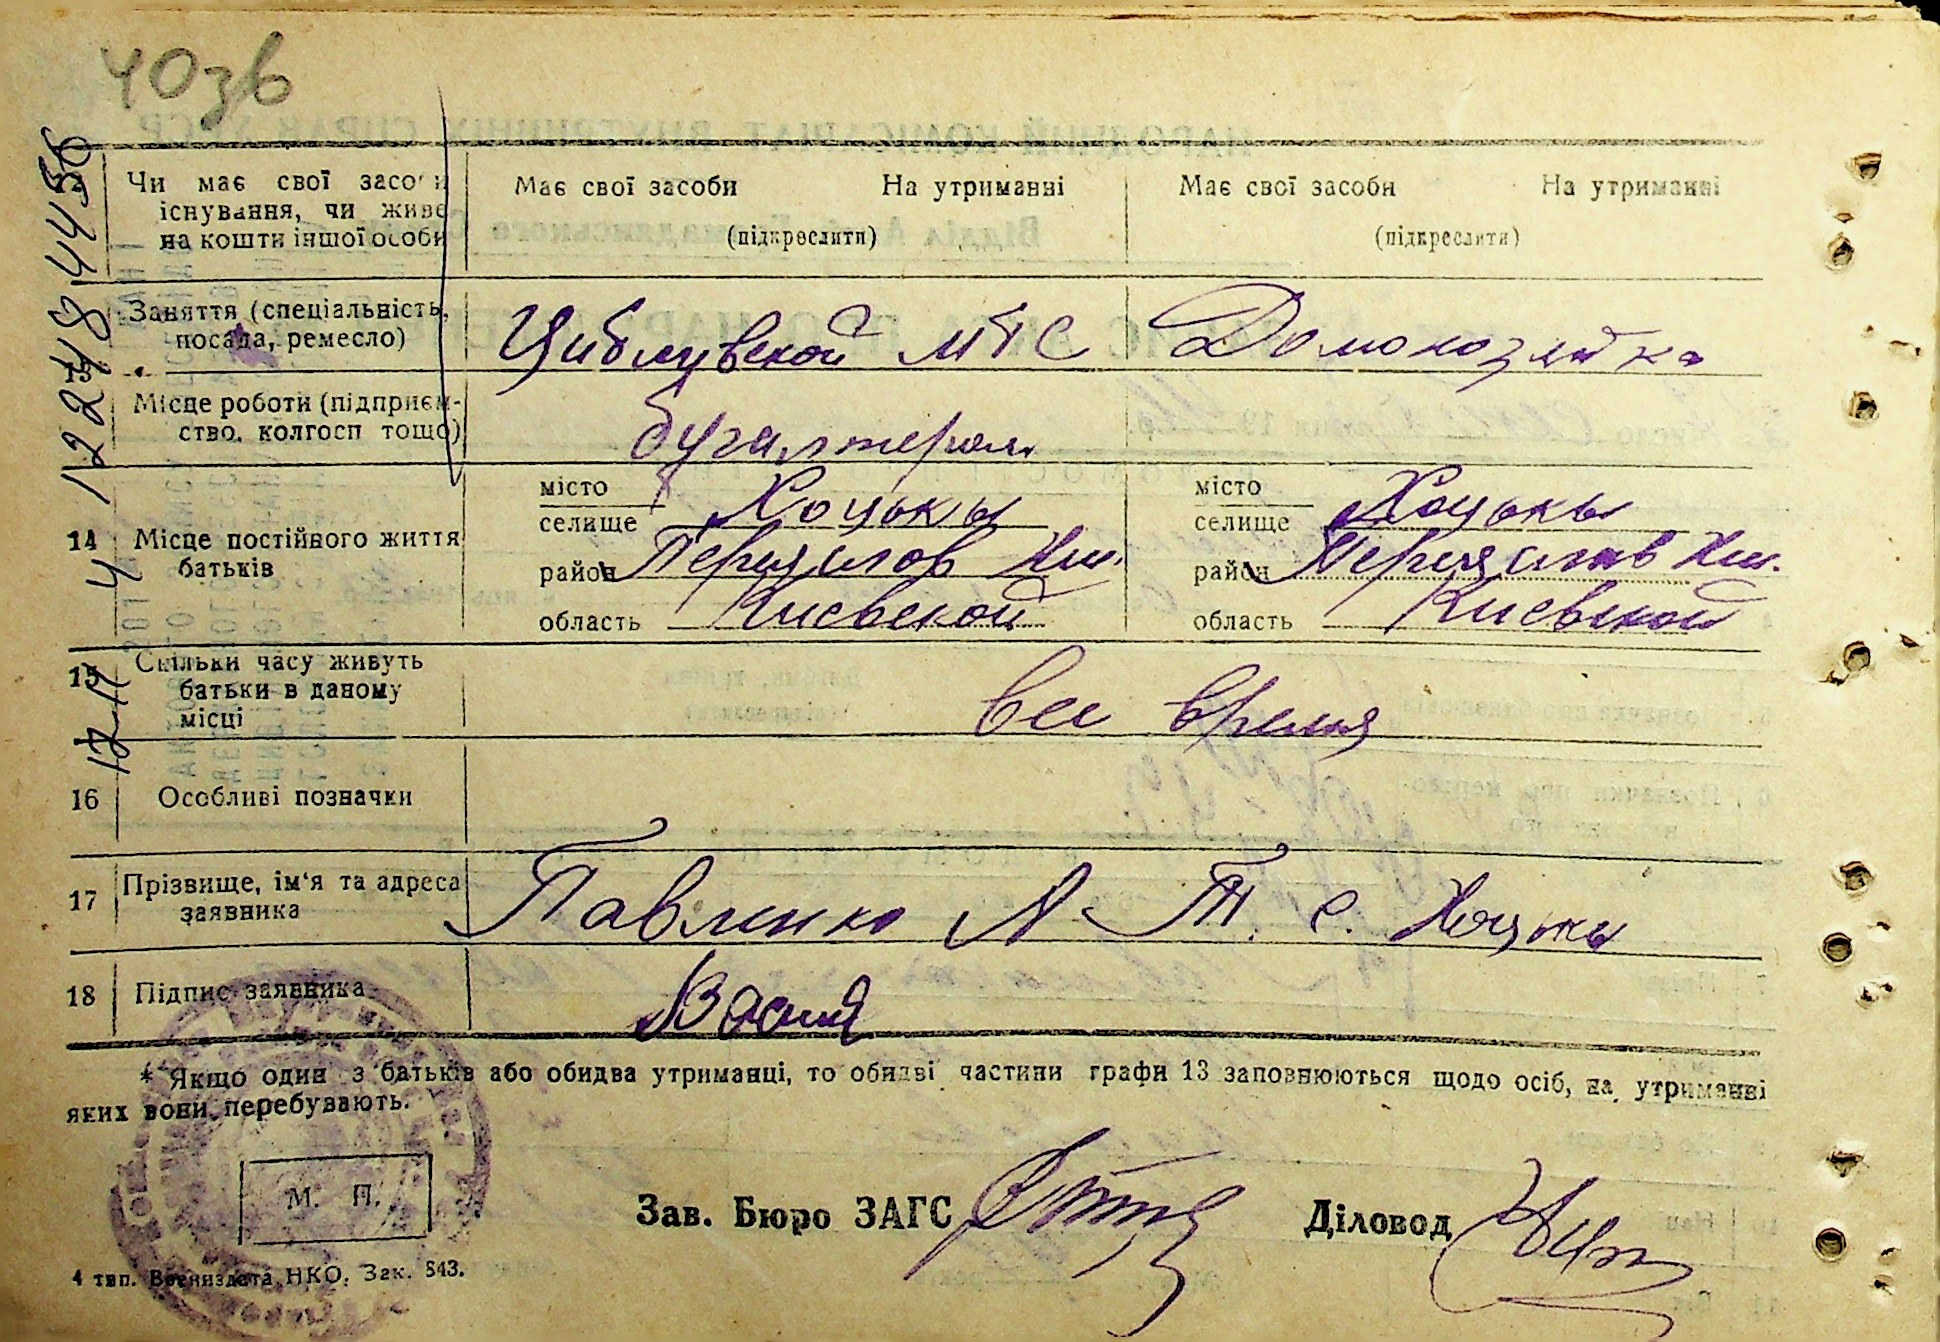 40зв
Чи має свої засоби
існування, чи живе
на кошти іншої особи
Має свої засоби На утриманні
(підкреслити)
Має свої засоби На утриманні
(підкреслити)
Заняття (спеціальність,
посада, ремесло)
Циблувской МТС
Домохозяйка
Місце роботи (підприєм-
ство, колгосп тощо)
бугалтером
14 Місце постійного життя
батьків
місто
селище Хоцьки
район Переяслов Хм.
область Киевской
місто
селище Хоцьки
район Переяслав Хм.
область Киевской
15 Скільки часу живуть
батьки в даному
місці
все время
16 Особливі позначки
17 Прізвище, ім'я та адреса
заявника
Павленко А Т. с. Хоцьки
18 Підпис заявника
* Якщо один з батьків або обидва утриманці, то обидві частини графи 13 заповнюються щодо осіб, на утриманні
яких вони перебувають.
М. П.
Зав. Бюро ЗАГС
Діловод
4 тип. Воениздата НКО. Зак. 843.